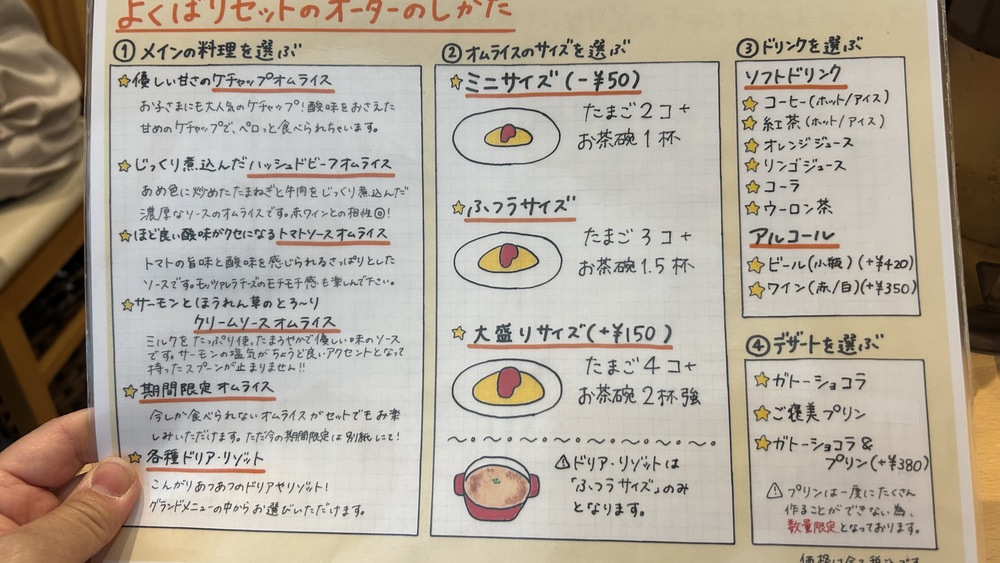 よくばりセットのオーダーのしかた
① メインの料理を選ぶ
優しい甘さのケチャップオムライス
お子さまにも大人気のケチャップ!酸味をおさえた
甘めのケチャップで、ペロッと食べられちゃいます。
じっくり煮込んだハッシュドビーフオムライス
あめ色に炒めたたまねぎと牛肉をじっくり煮込んだ
濃厚なソースのオムライスです。赤ワインとの相性◎!
ほど良い酸味がクセになるトマトソースオムライス
トマトの旨味と酸味を感じられるさっぱりとした
ソースです。モッツァレラチーズのモチモチ感も楽しんで下さい。
サーモンとほうれん草のとろ〜り
クリームソースオムライス
ミルクをたっぷり使ったまろやかで優しい味のソース
です。サーモンの塩気がちょうど良いアクセントとなって
持ったスプーンが止まりません!!
期間限定オムライス
今しか食べられないオムライスがセットでもお楽
しみいただけます。ただ今の期間限定は別紙にて!
各種ドリア・リゾット
こんがりあつあつのドリアやリゾット!
グランドメニューの中からお選びいただけます。
② オムライスのサイズを選ぶ
ミニサイズ(-¥50)
たまご2コ+
お茶碗1杯
ふつうサイズ
たまご3コ+
お茶碗1.5杯
大盛りサイズ(+¥150)
たまご4コ+
お茶碗2杯強
⚠ドリア・リゾットは
「ふつうサイズ」のみ
となります。
③ ドリンクを選ぶ
ソフトドリンク
コーヒー(ホット/アイス)
紅茶(ホット/アイス)
オレンジジュース
リンゴジュース
コーラ
ウーロン茶
アルコール
ビール(小瓶)(+¥420)
ワイン(赤/白)(+¥350)
④ デザートを選ぶ
ガトーショコラ
ご褒美プリン
ガトーショコラ&
プリン(+¥380)
⚠プリンは一度にたくさん
作ることができない為、
数量限定となっております。